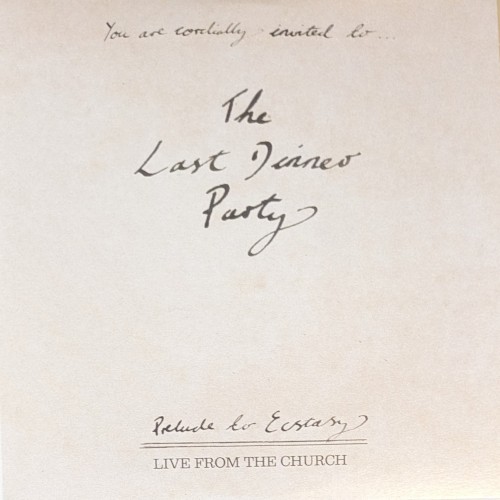 You are cordially invited to...
The
Last Dinner
Party
Prelude to Ecstasy
LIVE FROM THE CHURCH